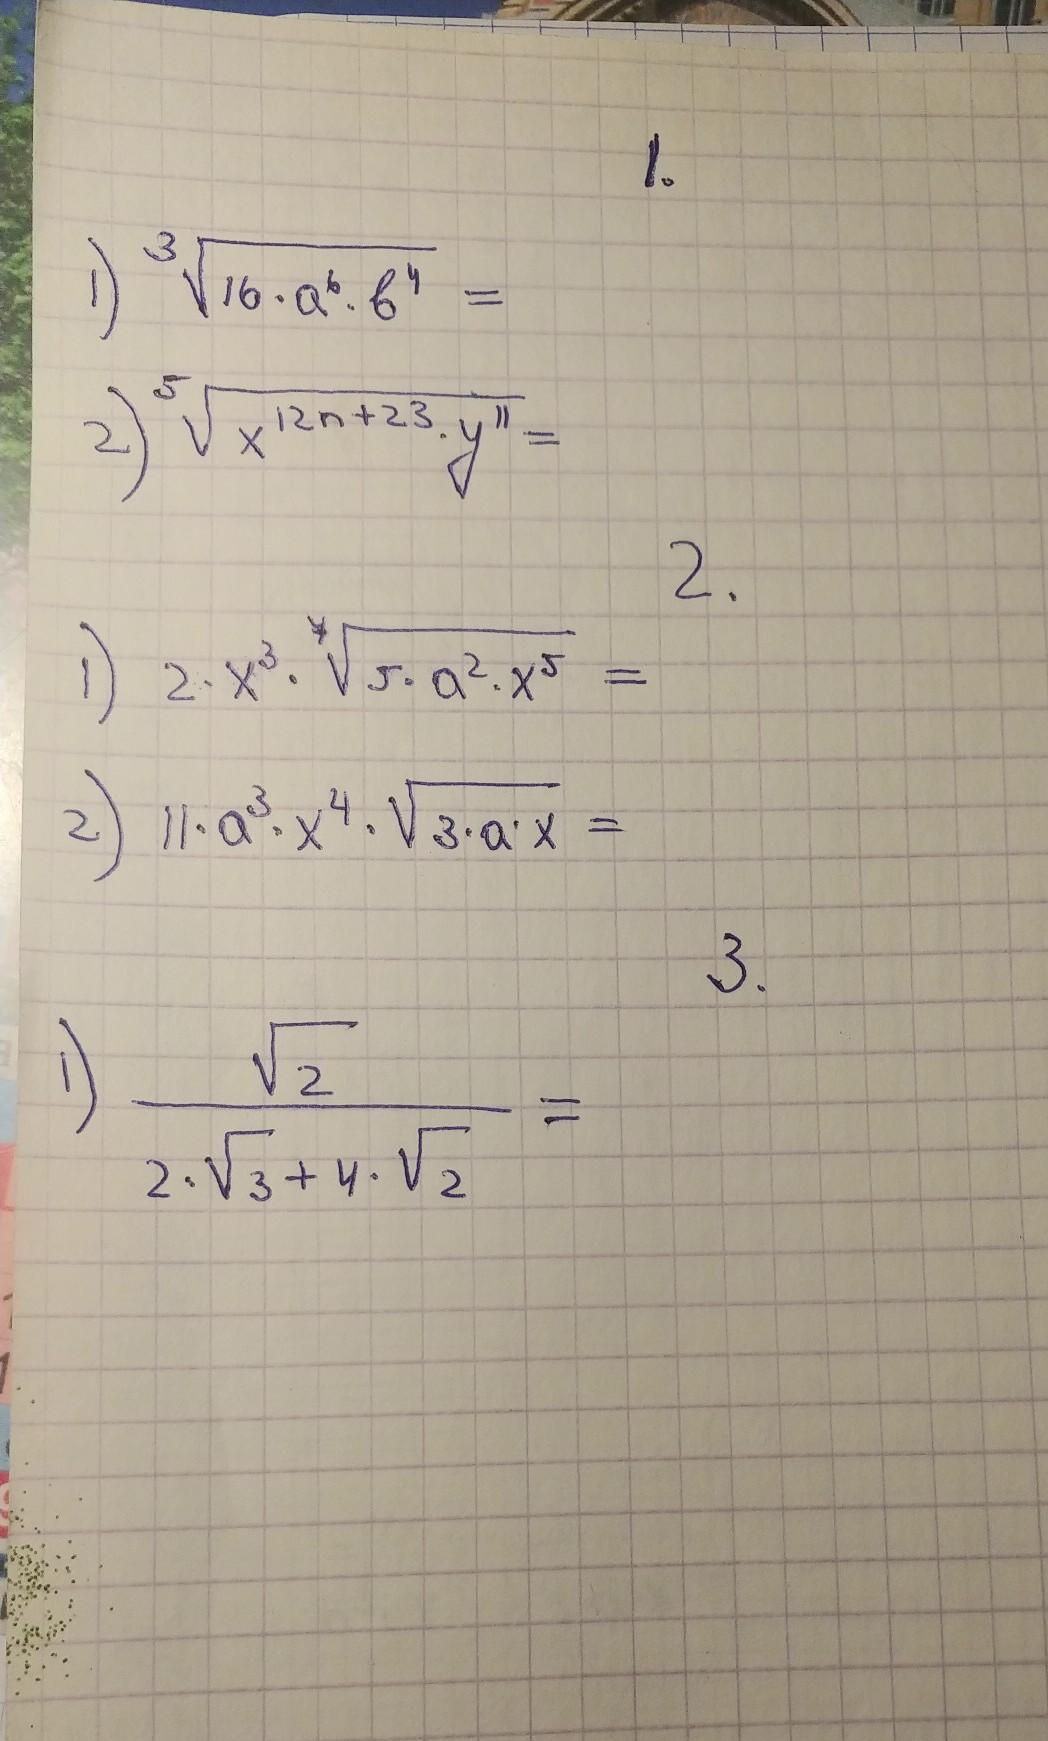 1.
1) ∛(16·a⁶·b⁴) =
2) ⁵√(x¹²ⁿ⁺²³·y¹¹) =
2.
1) 2·x³·⁴√(5·a²·x⁵) =
2) 11·a³·x⁴·√(3·a·x) =
3.
1) √2 / (2·√3+4·√2) =